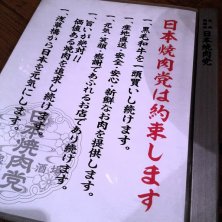 日本焼肉党は約束します
一、黒毛和牛を一頭買いし続けます。
一、産地直送・安全・安心・新鮮なお肉を提供します。
一、元気・笑顔・感謝・あふれるお店であり続けます。
一、旨いが絶対!!
価値ある焼肉を追求し続けます。
一、浅草橋から日本を元気にします。
日本焼肉党
酒場
日本焼肉党